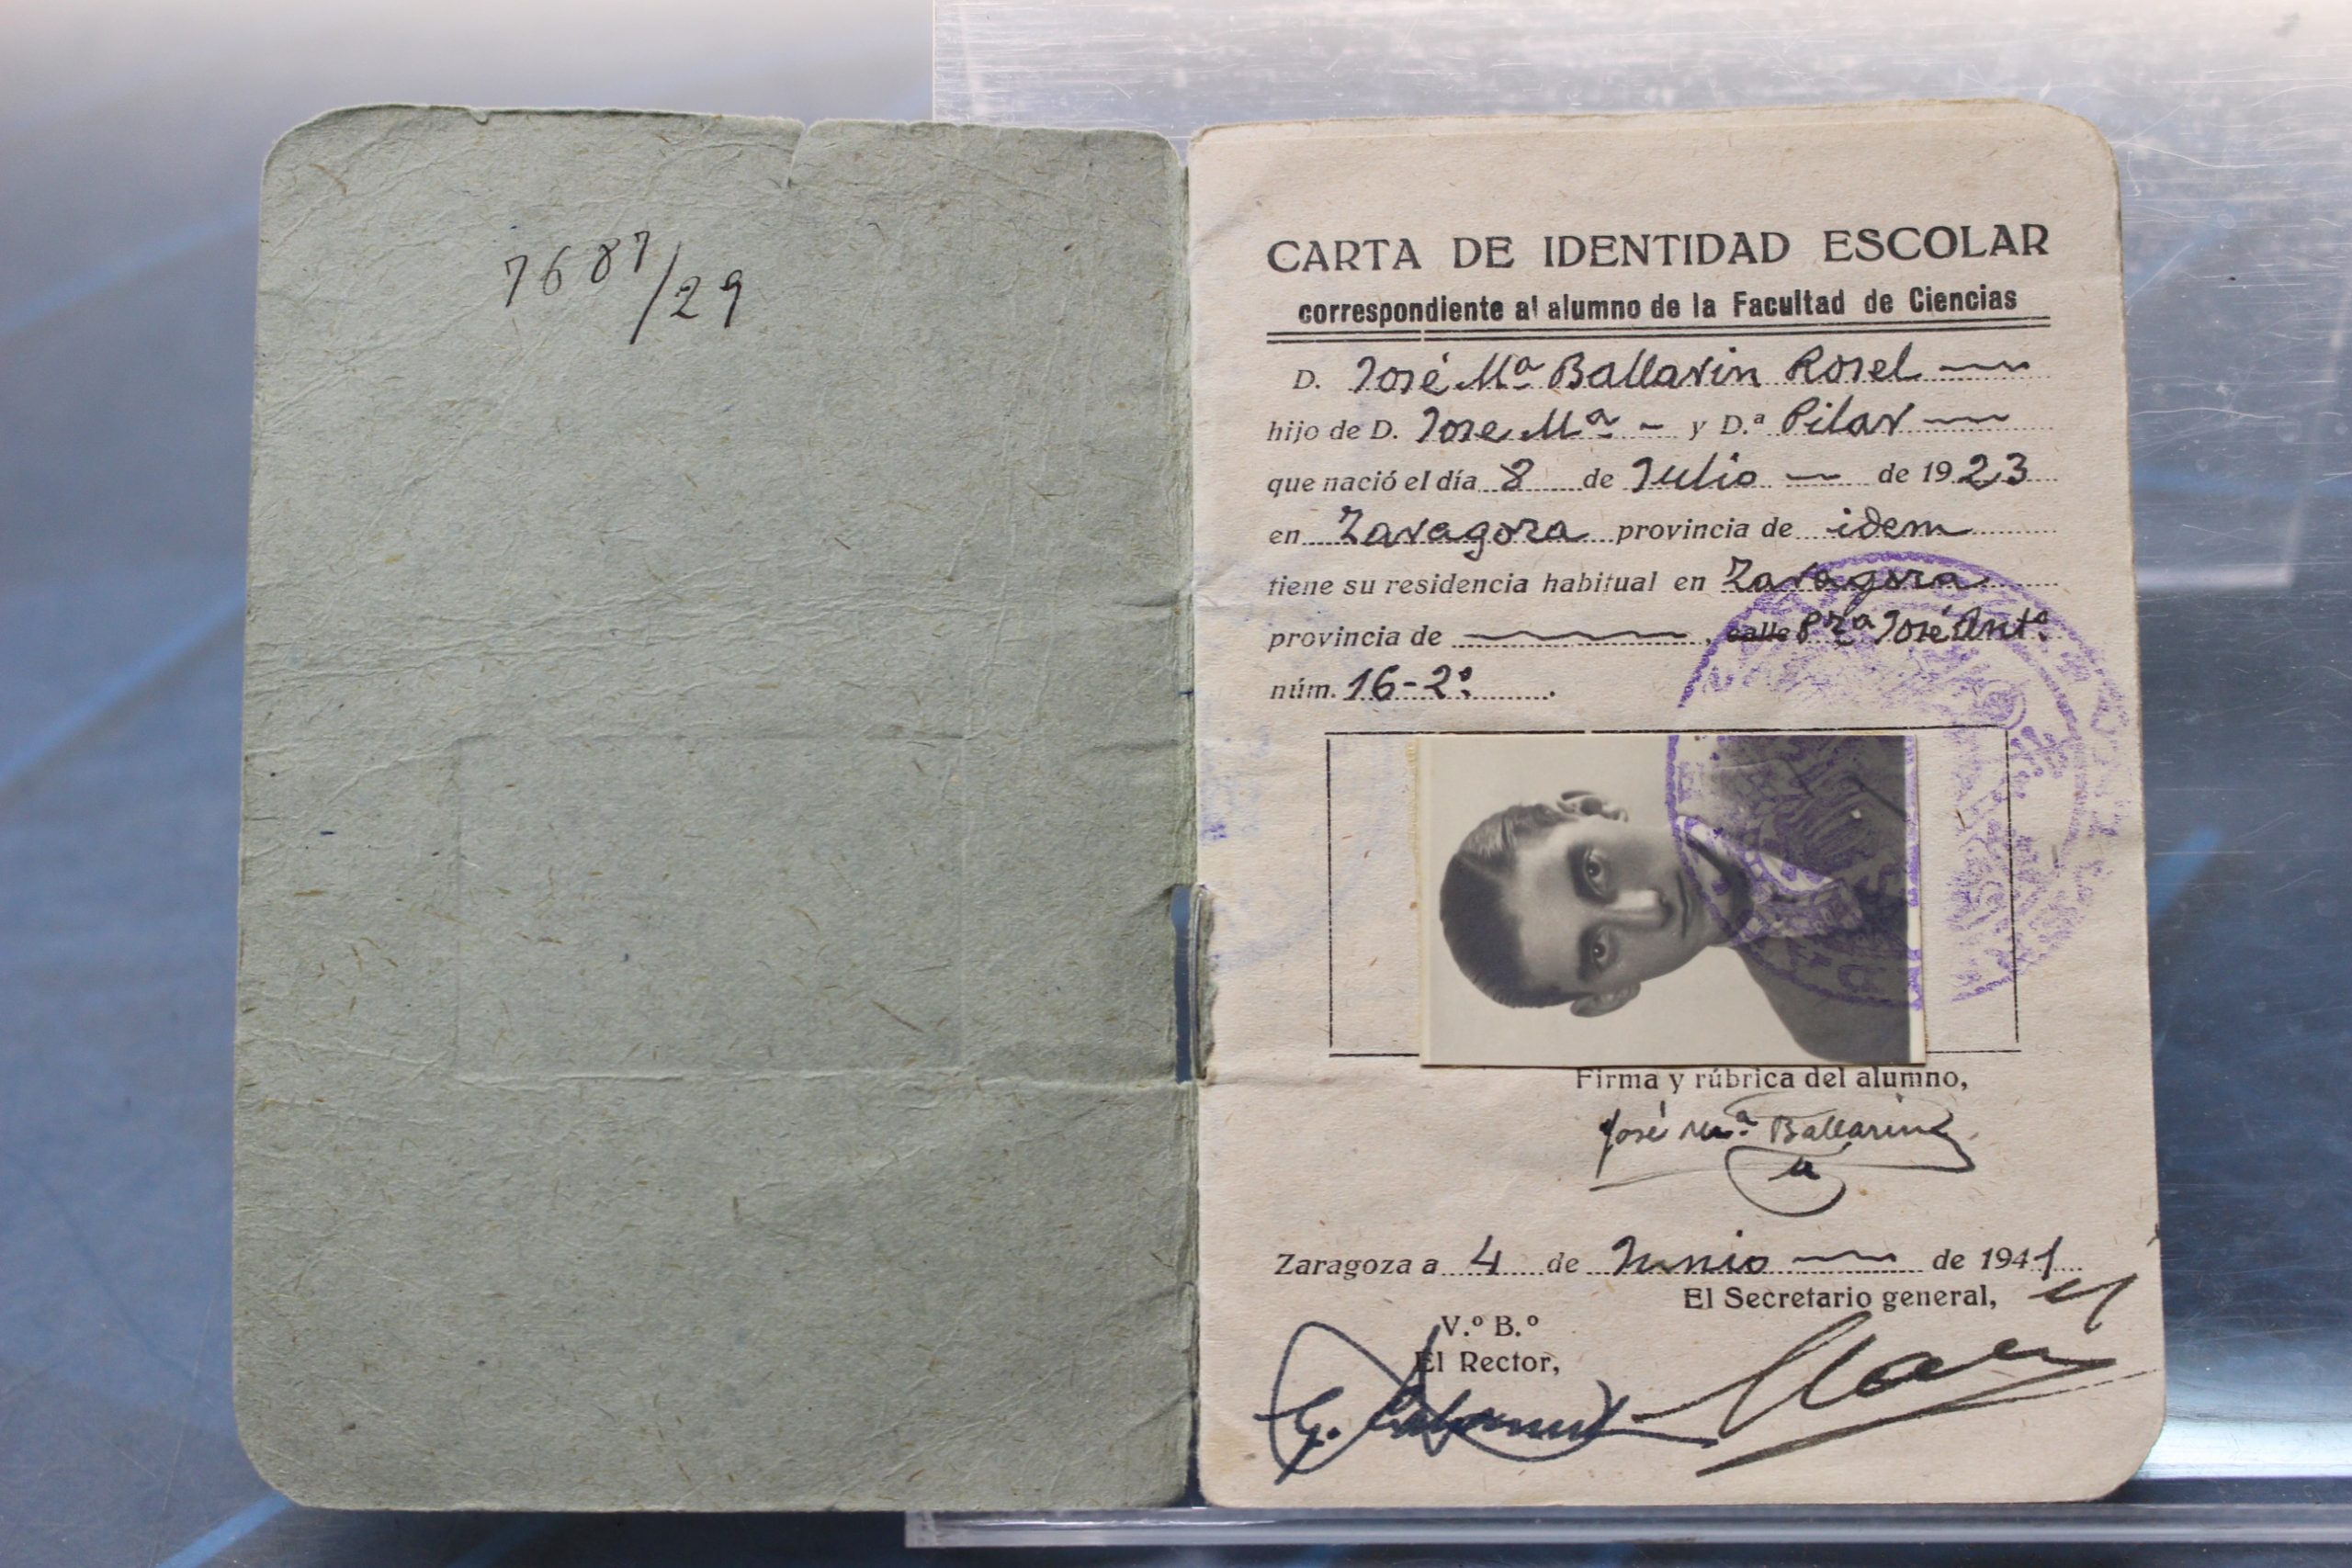 7687/29
CARTA DE IDENTIDAD ESCOLAR
correspondiente al alumno de la Facultad de Ciencias
D. José Mª Ballarin Rosel
hijo de D. Jose Mª - y D.ª Pilar
que nació el día 8 de Julio de 1923
en Zaragoza provincia de idem
tiene su residencia habitual en Zaragoza
provincia de , calle Pzª José Antº
núm. 16-2º .
Firma y rúbrica del alumno,
José Mª Ballarin
Zaragoza a 4 de Junio de 1941
El Secretario general,
V.º B.º
El Rector,